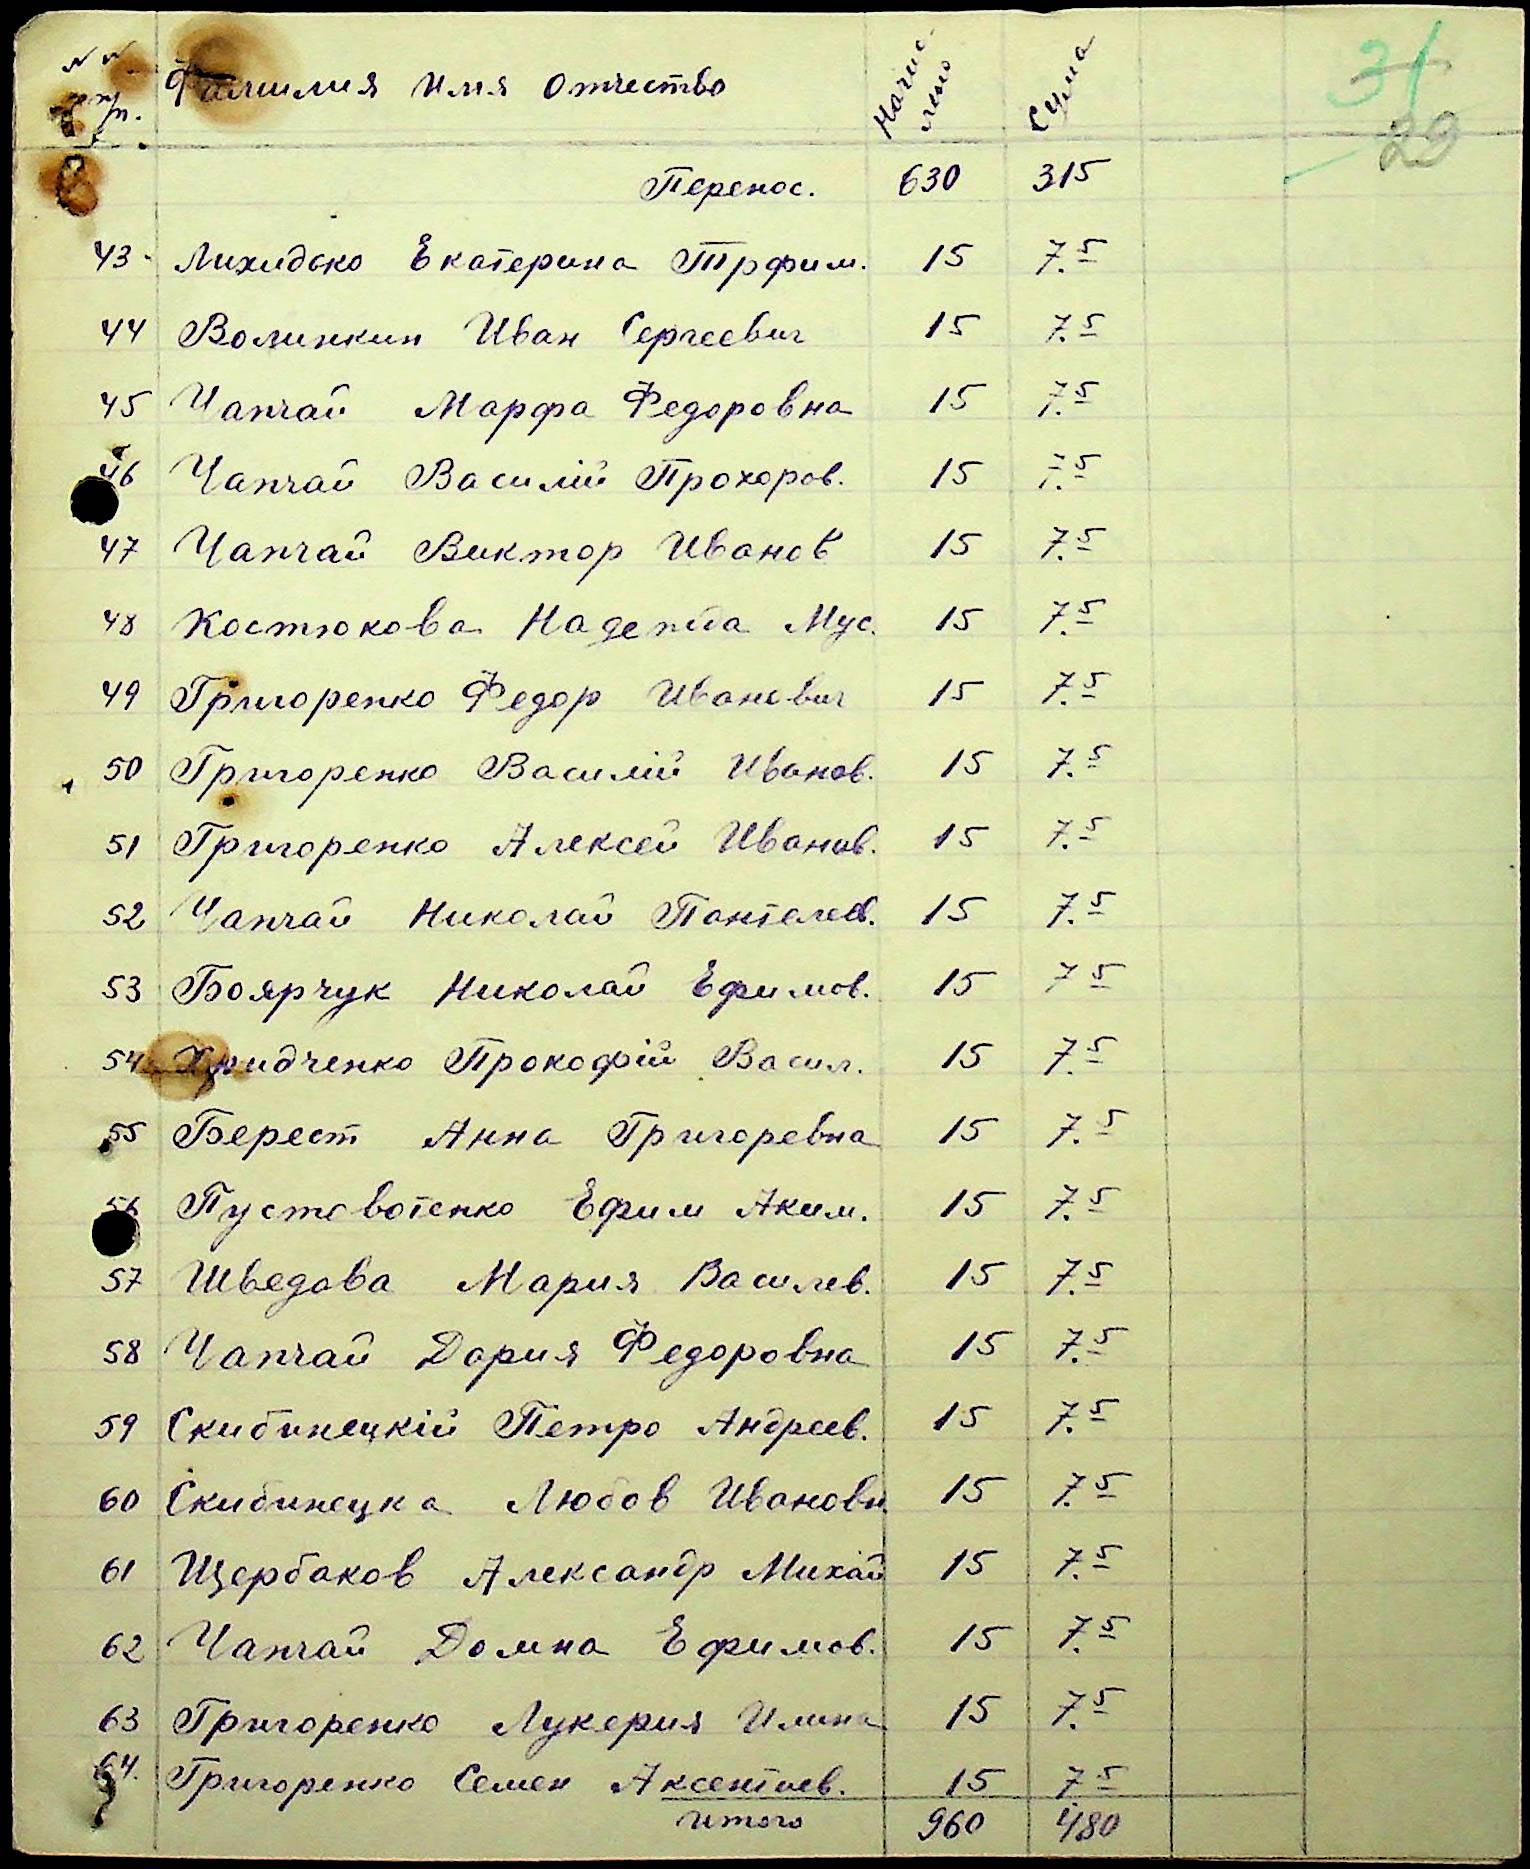 № № п/п. Фамилия Имя Отчество Начис- лено Сума 31
29
Перенос. 630 315
43 Лихидько Екатерина Трфим. 15 7.5
44 Волинкин Иван Сергеевич 15 7.5
45 Чапчай Марфа Федоровна 15 7.5
46 Чапчай Василій Прохоров. 15 7.5
47 Чапчай Виктор Иванов 15 7.5
48 Костюкова Надежда Мус. 15 7.5
49 Григоренко Федор Иванович 15 7.5
50 Григоренко Василій Иванов. 15 7.5
51 Григоренко Алексей Иванов. 15 7.5
52 Чапчай Николай Пантелев. 15 7.5
53 Боярчук Николай Ефимов. 15 7 5
54 Прокофій Васил. 15 7.5
55 Берест Анна Григоревна 15 7.5
56 Пустовотенко Ефим Аким. 15 7.5
57 Шведова Мария Василев. 15 7.5
58 Чапчай Дария Федоровна 15 7.5
59 Скибинецкій Петро Андреев. 15 7.5
60 Скибинецка Любов Ивановн 15 7.5
61 Щербаков Александр Михай 15 7.5
62 Чапчай Домна Ефимов. 15 7.5
63 Григоренко Лукерия Илина 15 7.5
64. Григоренко Семен Аксентиев. 15 7.5
итого 960 480